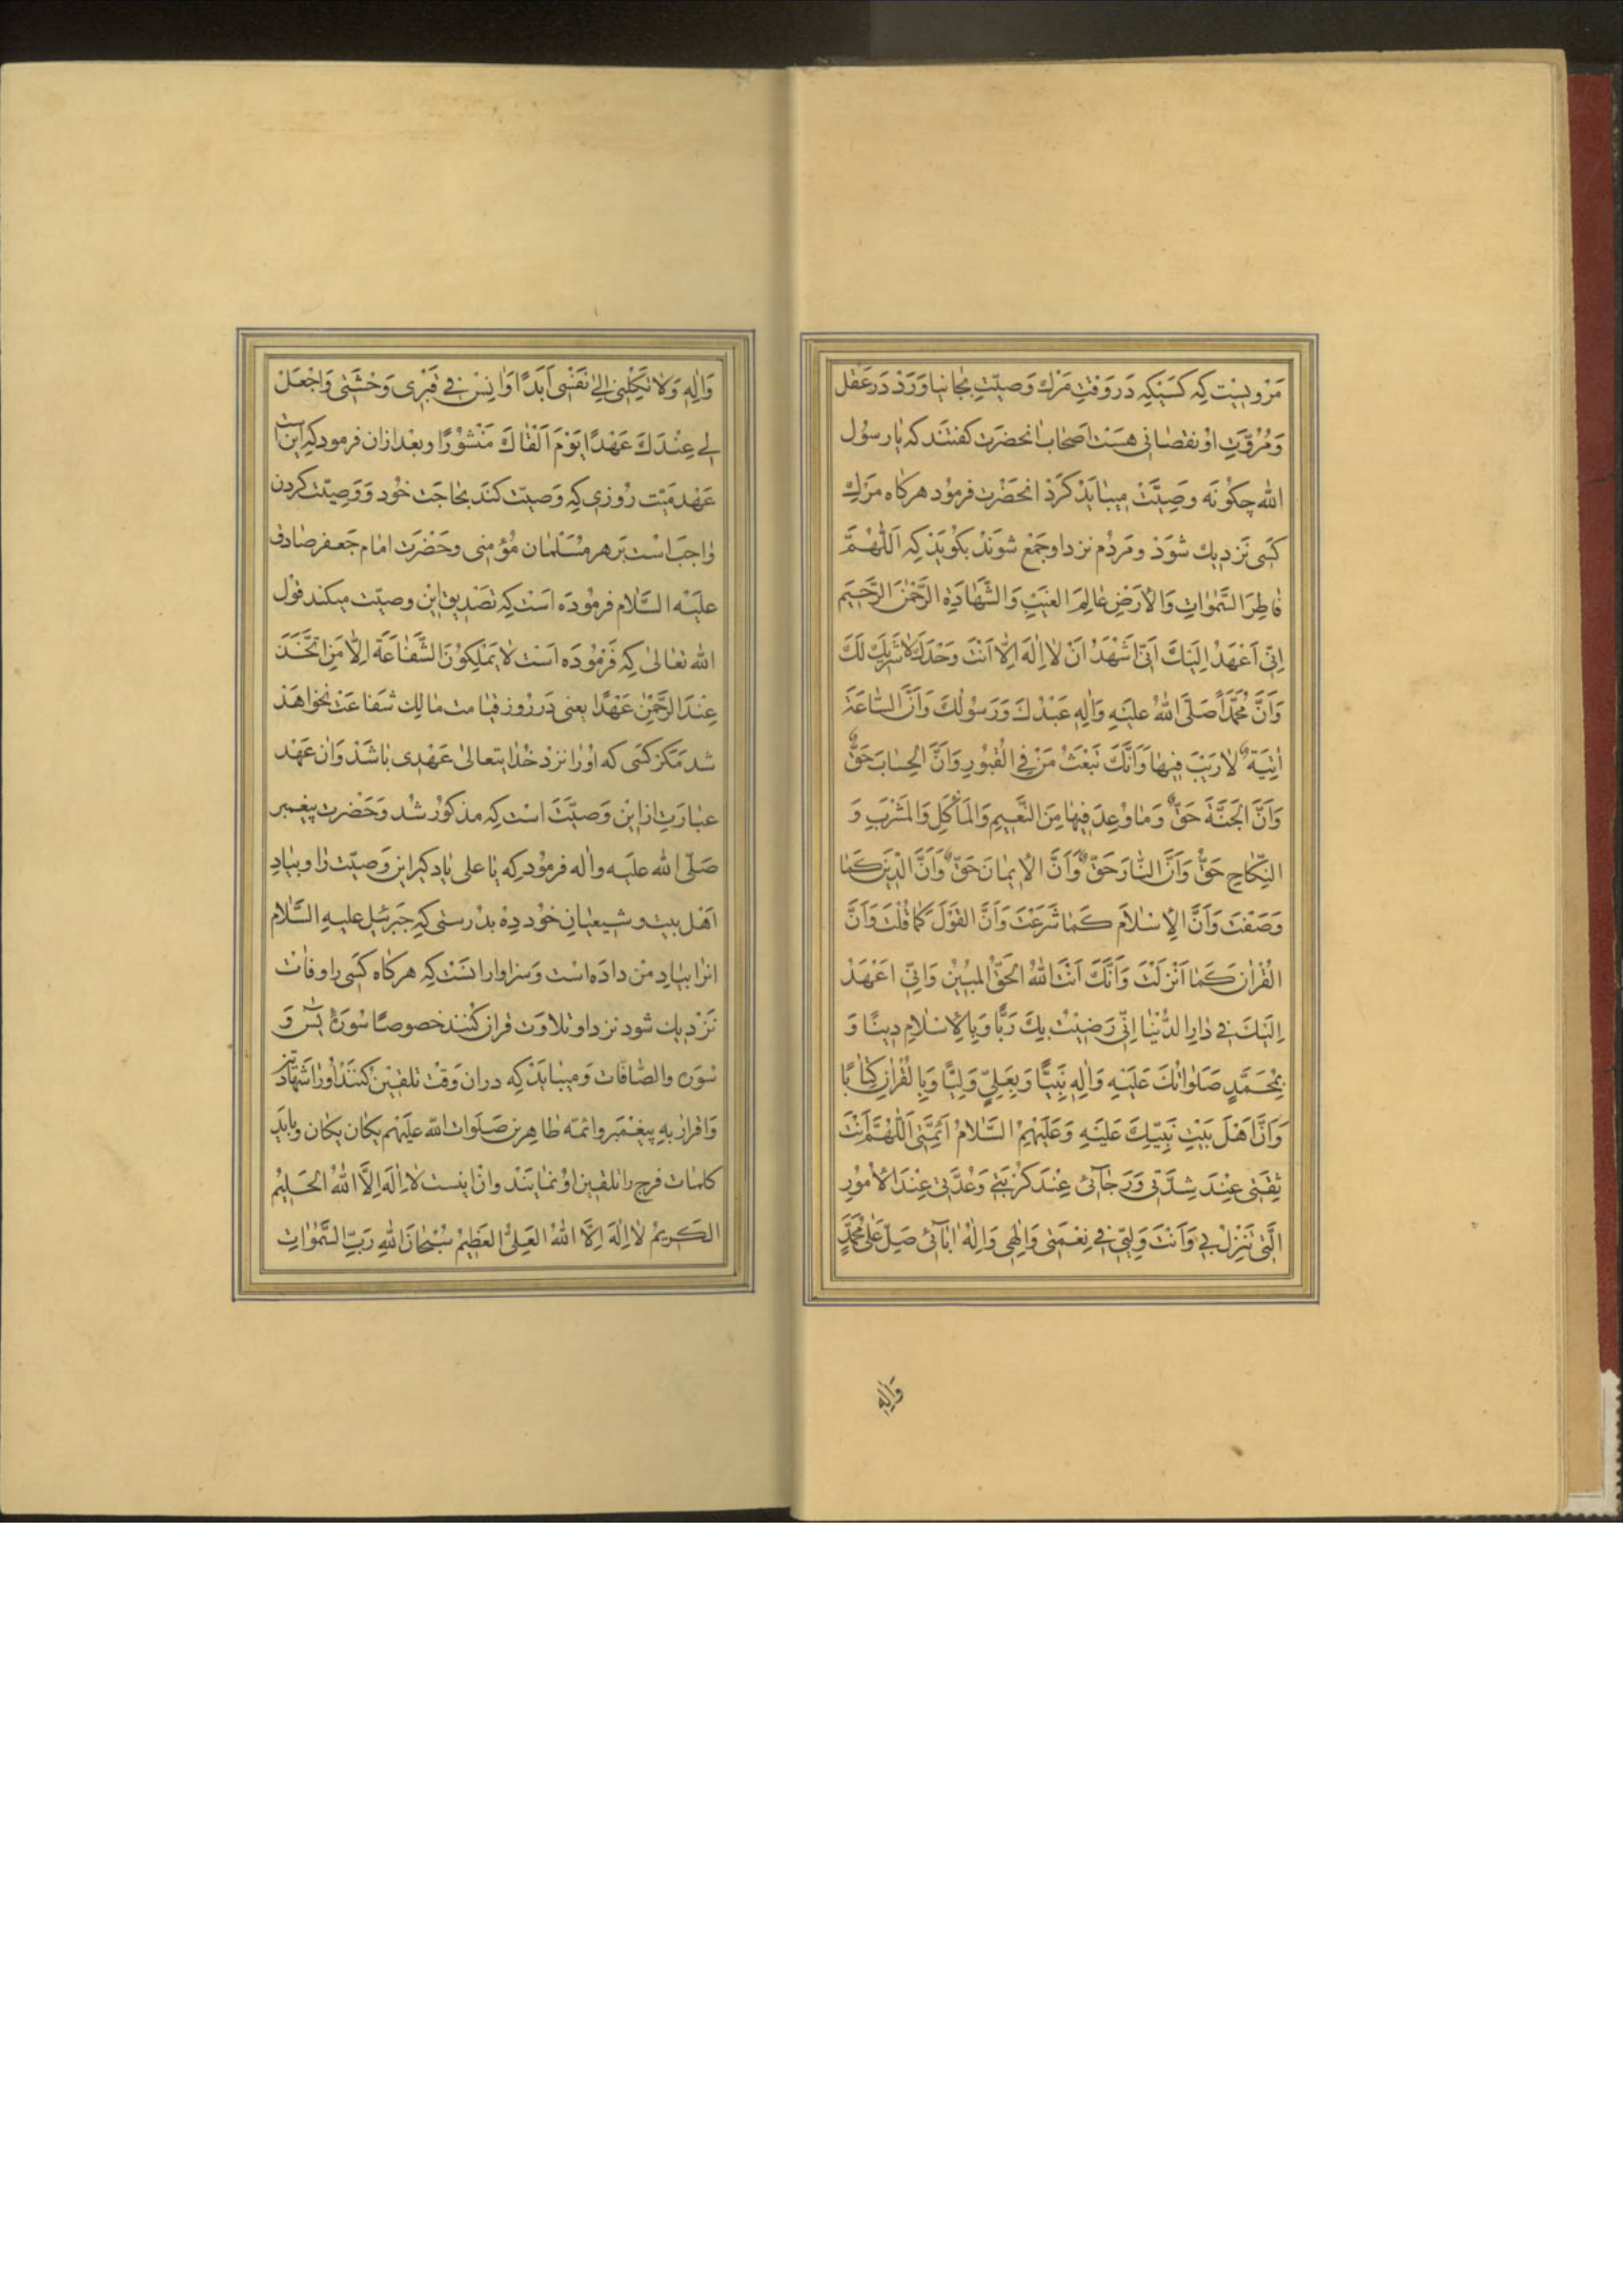 مَرْویست که کَسَیکِه دَر وَقتِ مَرْك وَصیّتِ بجا نیاوَرَدْ دَر عَقل
وَمُرُوَّتِ اوْ نقصَانی هسَت اَصْحَاب انحضرَت کفتَند که یا رسوُل
الله چکوُنَه وصِیَّتْ میبایَدْ کَرَدْ انحَضْرَت فرموُد هرکاه مَرَك
کَسی نَزدیك شوَدْ ومَردُم نزد او جَمْع شوَندْ بکوُیَدْ کِه اَللّهُمَّ
فاطِرَ السَّمٰوٰاتِ وَالاَرَضِ عٰالِمَ الغَیَبِ وَالشَّهٰادَةِ الرَّحْمٰنَ الرَّحیَم
اِنّی اَعْهَدُ اِلَیَكَ اَنّی اَشْهَدُ اَنْ لٰا اِلٰهَ اِلّٰا اَنْتَ وَحْدَكَ لٰا شَرَیكَ لَكَ
وَاَنَّ مُحَمَّدًا صَلَّی اللهُ عَلَیَهِ وَاٰلِهِ عَبْدُكَ وَرَسوُلُكَ وَاَنَّ السّٰاعَةَ
اٰتِیَةٌ لٰا رَیَبَ فیهٰا وَاَنَّكَ تَبْعَثُ مَنْ فِی الْقبُورِ وَاَنَّ الحِسٰابَ حَقٌّ
وَاَنَّ الجَنَّةَ حَقٌّ وَمٰا وُعِدَ فیهٰا مِنَ النَّعیمِ وَالمَأکَلِ وَالمَشْرَبِ وَ
النِّکاحِ حَقٌّ وَاَنَّ النّٰارَ حَقٌّ وَاَنَّ الاِیمٰانَ حَقٌّ وَاَنَّ الدّینَ کَمٰا
وَصَفْتَ وَاَنَّ الاِسْلٰامَ کَمٰا شَرَعْتَ وَاَنَّ القَوْلَ کَمٰا قُلْتَ وَاَنَّ
القُرْاٰنَ کَمٰا اَنْزَلتَ وَاَنَّكَ اَنْتَ اللهُ الحَقُّ المبُینُ وَاِنّی اَعْهَدُ
اِلَیكَ فی دٰارِ الدُّنْیٰا اِنّی رَضیتُ بِكَ رَبًّا وَبِالاِسْلٰامِ دینًا وَ
بِمُحَمَّدٍ صَلَوٰاتُكَ عَلَیَهِ وَاٰلِهِ نَبِیًّا وَبِعَلِیٍّ وَلِیًّا وَبِالقُرْاٰنِ کِتٰابًا
وَاَنَّ اَهْلَ بَیتِ نَبِیِّكَ عَلَیَهِ وَعَلَیهِمُ السَّلٰامُ اَئِمَّتی اَللّٰهُمَّ اَنْتَ
ثِقَتی عِنْدَ شِدَّتی وَرَجٰآئی عِنْدَ کُرْبَتی وَعُدَّتی عِنْدَ الاُموُرِ
الَّتی تَنْزِلُ بی وَاَنْتَ وَلِیّی فی نِعْمَتی وَاِلٰهی وَاِلٰهُ اٰبٰآئی صَلِّ عَلٰی مُحَمَّدٍ
وَاٰلِهِ
وَاٰلِهِ وَلٰا تَکِلْنی اِلٰی نَفْسی اَبَدًا وَاٰنِسْ فی قَبْری وَحْشَتی وَاجْعَلْ
لی عِنْدَكَ عَهْدًا یَوْمَ اَلقٰاكَ مَنْشوُرًا وبعْد ازان فرموُد که این است
عَهْد مَیّت روُزی که وَصیّت کنَد بحٰاجَت خوُد وَوَصِیّت کردن
واجبَ اسْت بَر هر مُسَلمٰان مُؤمنی وحَضْرَت امٰام جَعفر صٰادق
علیَه السَّلام فرموُدَه اَسْت که تصَدیق این وصیّت میکند قول
الله تعٰالیٰ که فَرموُدَه اَسْت لٰا یَمْلِکوُنَ الشَّفٰاعَةَ اِلّٰا مَنِ اتَّخَذَ
عِنْدَ الرَّحْمٰنِ عَهْدًا یعنی دَر رُوْز قیٰامت مٰالِك شَفاعَت نخواهَد
شد مَکر کسَی که اوُرا نزد خُدایتعالیٰ عَهْدی بٰاشَدْ وَان عَهْد
عبٰارَت از این وَصیّتَ است که مذکوُر شُد وَحَضْرت پیغمبر
صَلّی الله علیَه واٰله فرموُد که یٰا علی یٰاد کیر این وَصیّت را وبیٰادِ
اَهْل بیت و شیعیٰانِ خوُد دِه بدُرستی که جَبرئیل علیهِ السَّلام
انرا بیٰادِ من دادَه است وَسزاوار انسَت که هرکاه کسَی را وفات
نَزْدیك شود نزد او تلاوَت قران کنند خصوصًا سوُرَهٔ یٰسٓ وَ
سوُرَه والصّٰافّات وَمیبٰایَدْ که دران وَقْت تلقین کننَدْ اوُرا شهَادَتین
وَاقرار بهِ پیغْمبَر وائمّه طٰاهِرین صَلَوات اللّه عَلَیْهِم یکان یکان وبٰایَد
کلمٰات فرج را تلقین اوُ نمٰایَنْد وان اینست لٰا اِلٰهَ اِلَّا اللهُ الحَلیمُ
الکَریمُ لٰا اِلٰهَ اِلَّا اللهُ العَلِیُّ العَظیمُ سُبْحٰانَ اللهِ رَبِّ السَّمٰوٰاتِ